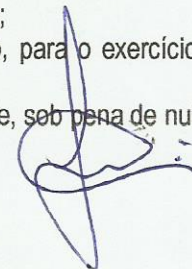 ;
o, para o exercício
e, sob pena de nu